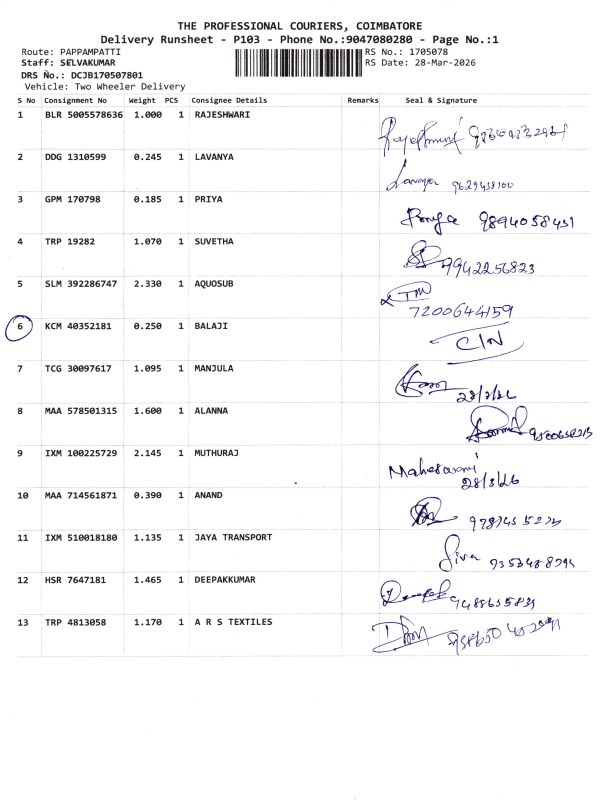 THE PROFESSIONAL COURIERS, COIMBATORE
Delivery Runsheet - P103 - Phone No.:9047080280 - Page No.:1
Route: PAPPAMPATTI RS No.: 1705078
Staff: SELVAKUMAR RS Date: 28-Mar-2026
DRS No.: DCJB170507801
Vehicle: Two Wheeler Delivery
S No Consignment No Weight PCS Consignee Details Remarks Seal & Signature
1 BLR 5005578636 1.000 1 RAJESHWARI
2 DDG 1310599 0.245 1 LAVANYA
Lavanya 9629438100
3 GPM 170798 0.185 1 PRIYA
9894058451
4 TRP 19282 1.070 1 SUVETHA
9942256823
5 SLM 392286747 2.330 1 AQUOSUB
TM
7200644159
6 KCM 40352181 0.250 1 BALAJI
C/N
7 TCG 30097617 1.095 1 MANJULA
28/3/26
8 MAA 578501315 1.600 1 ALANNA
9 IXM 100225729 2.145 1 MUTHURAJ
Maheswari
28/3/26
10 MAA 714561871 0.390 1 ANAND
11 IXM 510018180 1.135 1 JAYA TRANSPORT
Siva
12 HSR 7647181 1.465 1 DEEPAKKUMAR
Deepak
13 TRP 4813058 1.170 1 A R S TEXTILES